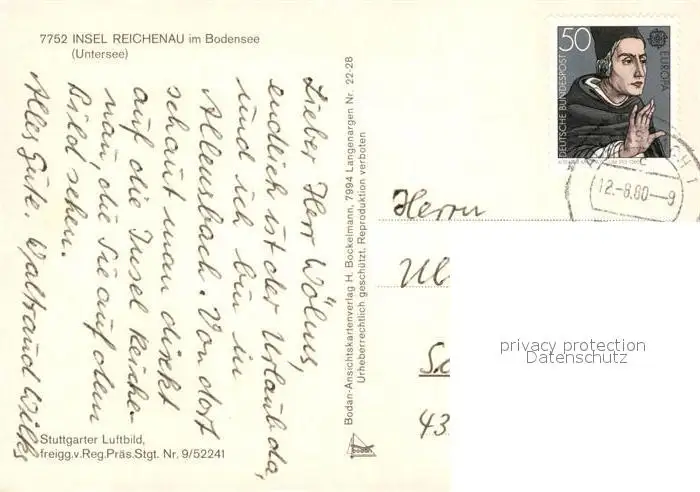 7752 INSEL REICHENAU im Bodensee
(Untersee)
Lieber Herr Wölms,
endlich ist der Urlaub da,
und ich bin in
Allensbach. Von dort
schaut man direkt
auf die Insel Reiche-
nau, die Sie auf dem
Bild sehen.
Alles Gute. Waltraud Wilks
Stuttgarter Luftbild,
freigg.v.Reg.Präs.Stgt. Nr. 9/52241
Bodan-Ansichtskartenverlag H. Bockelmann, 7994 Langenargen Nr. 22-28
Urheberrechtlich geschützt. Reproduktion verboten
bodan
50
EUROPA
DEUTSCHE BUNDESPOST
12.-8.80-9
Herrn
Ul
43
privacy protection
Datenschutz